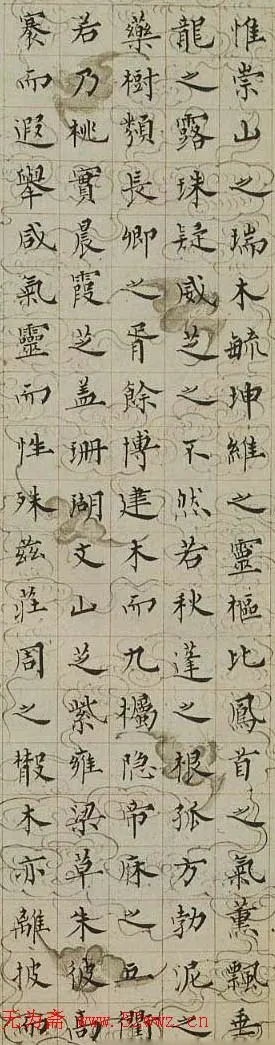 惟崇山之瑞木毓坤維之靈樞比鳳首之氣薰飄垂
龍之露珠疑威芝之不然若秋蓬之根孤方勃泥之
藥樹類長卿之胥餘博建木而九欘隐帝庥之五衢
若乃桃實晨霞芝盖珊瑚文山芝紫雍梁草朱彼高
褰而遐舉咸氣靈而性殊兹莊周之散木亦離披而
无为斋